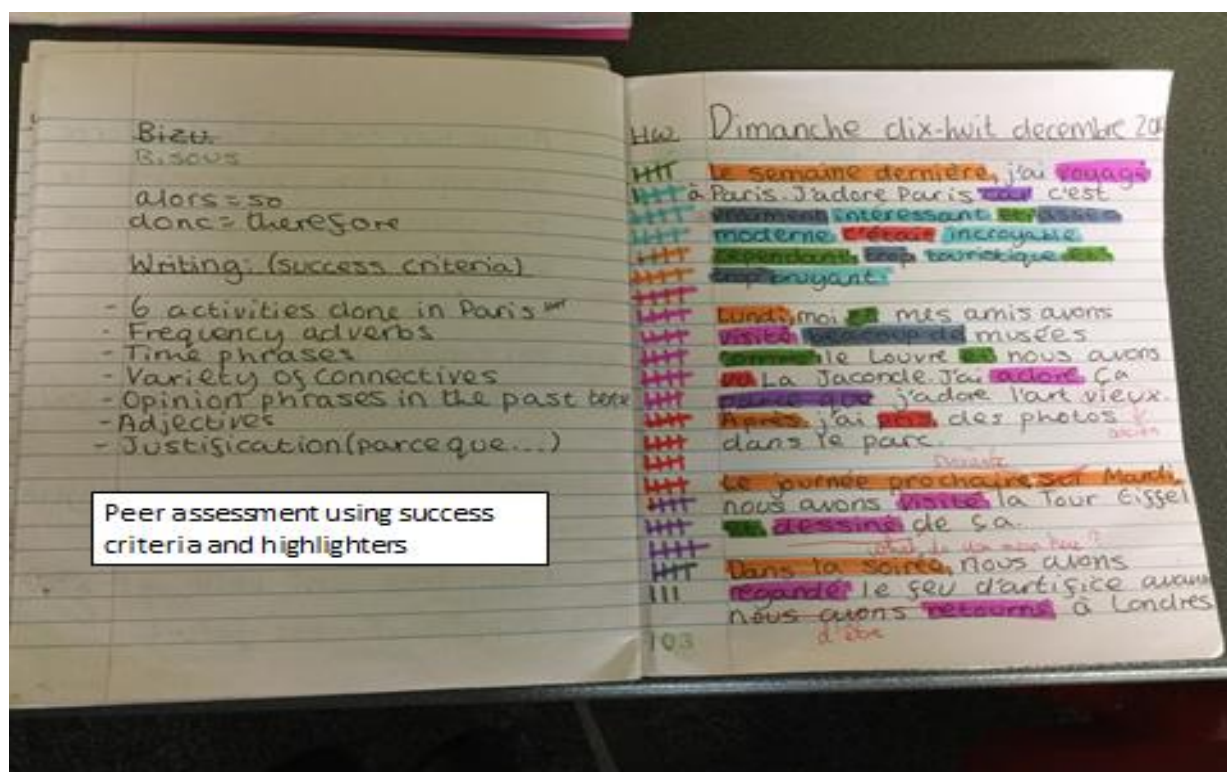 Bizu
Bisous
alors = so
donc = therefore
Writing: (success criteria)
- 6 activities done in Paris
- Frequency adverbs
- Time phrases
- Variety of connectives
- Opinion phrases in the past tense
- Adjectives
- Justification (parce que...)
Peer assessment using success
criteria and highlighters
HW Dimanche dix-huit decembre
Le semaine dernière, j'ai voyagé
à Paris. J'adore Paris car c'est
vraiment intéressant et assez
moderne. C'était incroyable
cependant, trop touristique et
trop bruyant.
Lundi, moi et mes amis avons
visité beaucoup de musées
comme le Louvre et nous avons
vu La Jaconde. J'ai adoré ça
parce que j'adore l'art vieux.
Après, j'ai pris des photos
dans le parc.
suivante
Le journée prochaire, sur Mardi,
nous avons visité la Tour Eiffel
et dessiné de ça.
what do you mean here?
Dans la soirée, nous avons
regardé le feu d'artifice avant
nous avons retourné à Londres
d'être
103